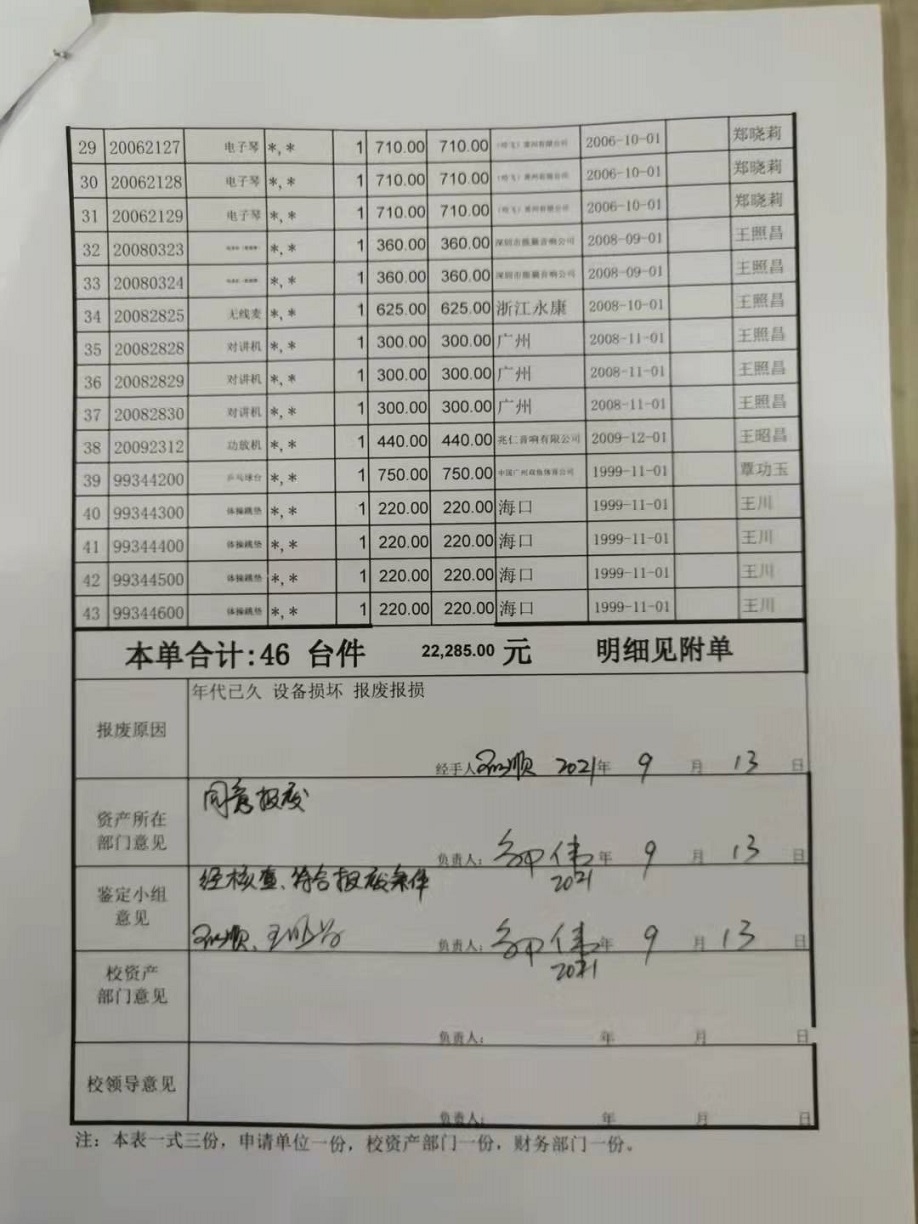 29 20062127 电子琴 *,* 1 710.00 710.00 2006-10-01 郑晓莉
30 20062128 电子琴 *,* 1 710.00 710.00 2006-10-01 郑晓莉
31 20062129 电子琴 *,* 1 710.00 710.00 2006-10-01 郑晓莉
32 20080323 *,* 1 360.00 360.00 音响公司 2008-09-01 王照昌
33 20080324 *,* 1 360.00 360.00 音响公司 2008-09-01 王照昌
34 20082825 无线麦 *,* 1 625.00 625.00 浙江永康 2008-10-01 王照昌
35 20082828 对讲机 *,* 1 300.00 300.00 广州 2008-11-01 王照昌
36 20082829 对讲机 *,* 1 300.00 300.00 广州 2008-11-01 王照昌
37 20082830 对讲机 *,* 1 300.00 300.00 广州 2008-11-01 王照昌
38 20092312 功放机 *,* 1 440.00 440.00 兆仁音响有限公司 2009-12-01 王昭昌
39 99344200 乒乓球台 *,* 1 750.00 750.00 1999-11-01 覃功玉
40 99344300 体操跳垫 *,* 1 220.00 220.00 海口 1999-11-01 王川
41 99344400 体操跳垫 *,* 1 220.00 220.00 海口 1999-11-01 王川
42 99344500 体操跳垫 *,* 1 220.00 220.00 海口 1999-11-01 王川
43 99344600 体操跳垫 *,* 1 220.00 220.00 海口 1999-11-01 王川
本单合计:46 台件 22,285.00 元 明细见附单
报废原因
年代已久 设备损坏 报废报损
经手人 2021年 9 月 13 日
资产所在
部门意见
同意报废
负责人: 年 9 月 13 日
2021
鉴定小组
意见
经核查、符合报废条件
负责人: 年 9 月 13 日
2021
校资产
部门意见
负责人: 年 月 日
校领导意见
负责人: 年 月 日
注: 本表一式三份, 申请单位一份, 校资产部门一份, 财务部门一份。